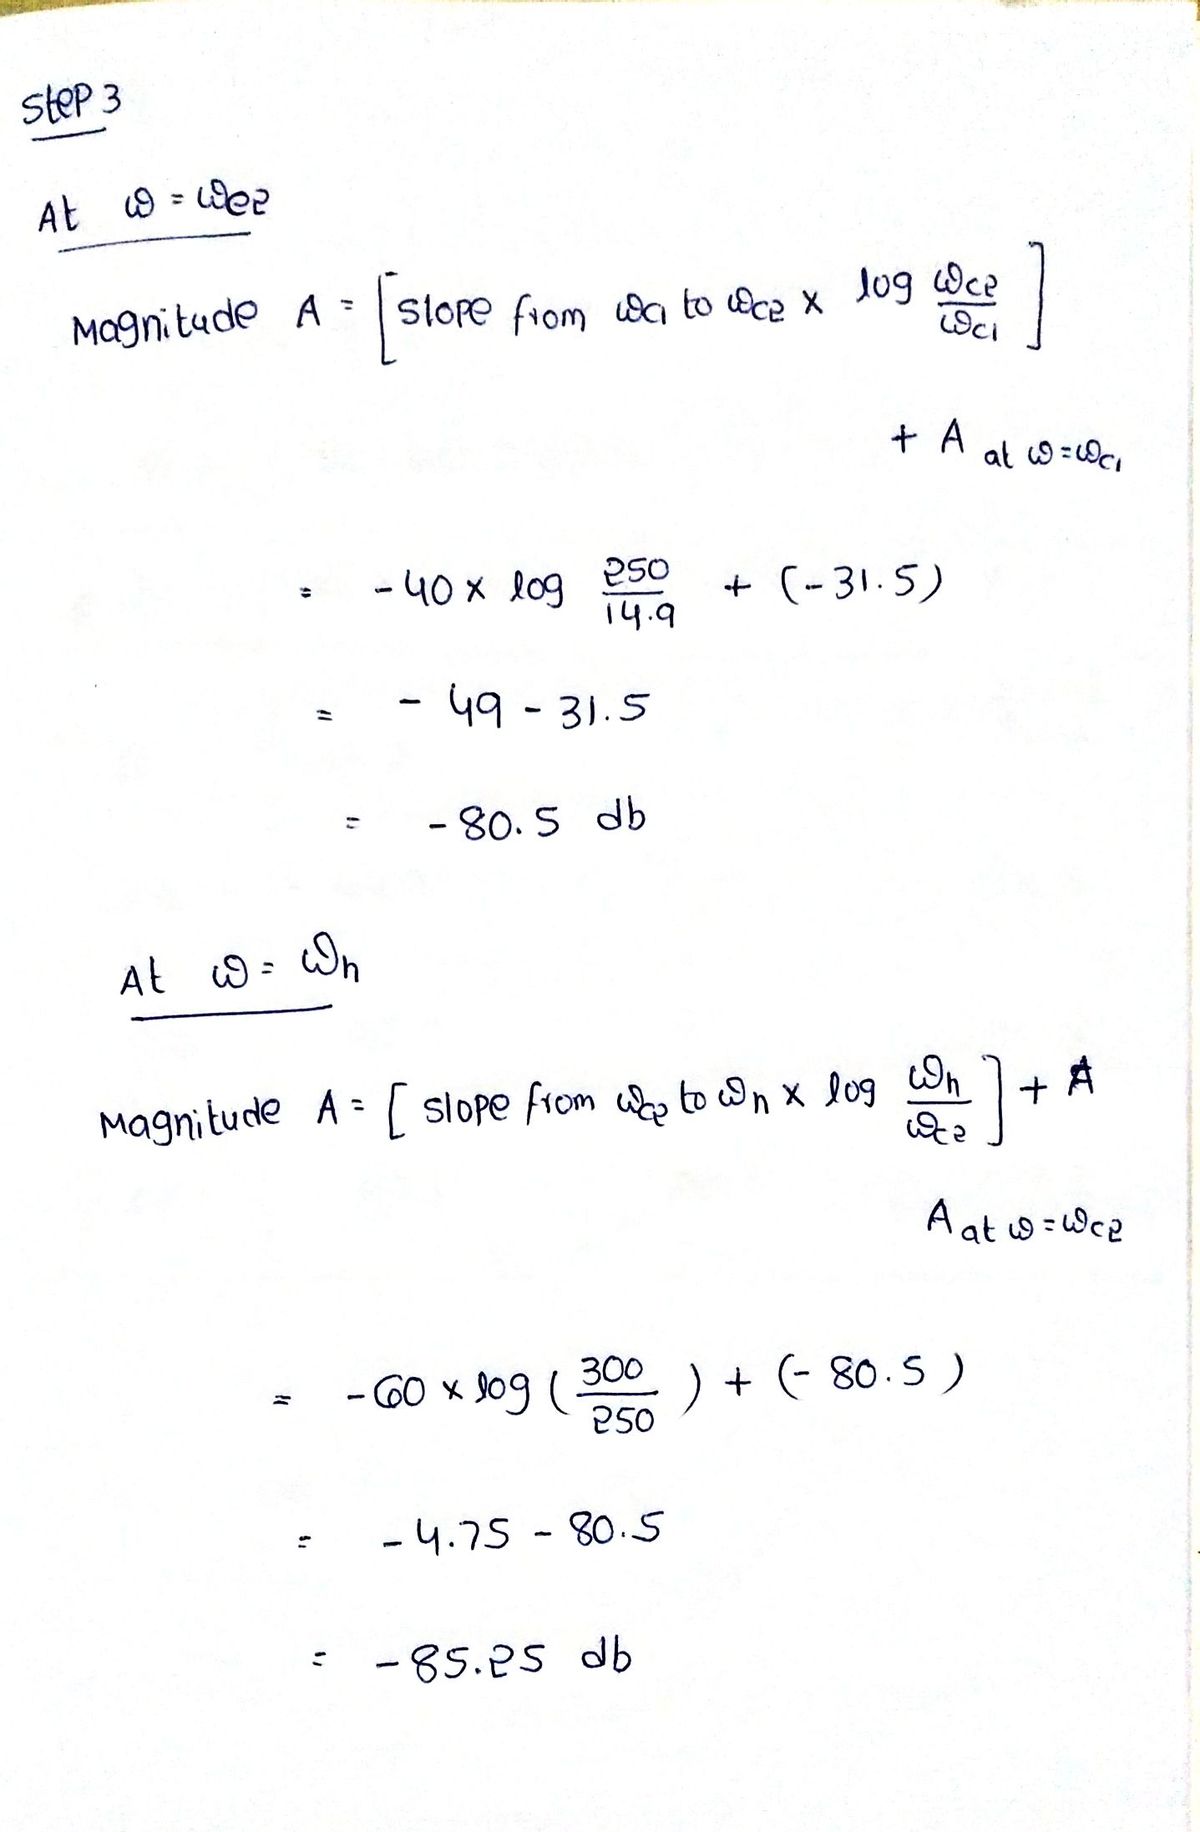 Step 3
At ω = ωc2
Magnitude A = [slope from ωc1 to ωc2 x log ωc2/ωc1]
+ A at ω=ωc1
= -40 x log 250/14.9 + (-31.5)
= - 49 - 31.5
= -80.5 db
At ω = ωn
Magnitude A = [slope from ωc2 to ωn x log ωn/ωc2] + A
A at ω=ωc2
= -60 x log (300/250) + (-80.5)
= -4.75 - 80.5
= -85.25 db